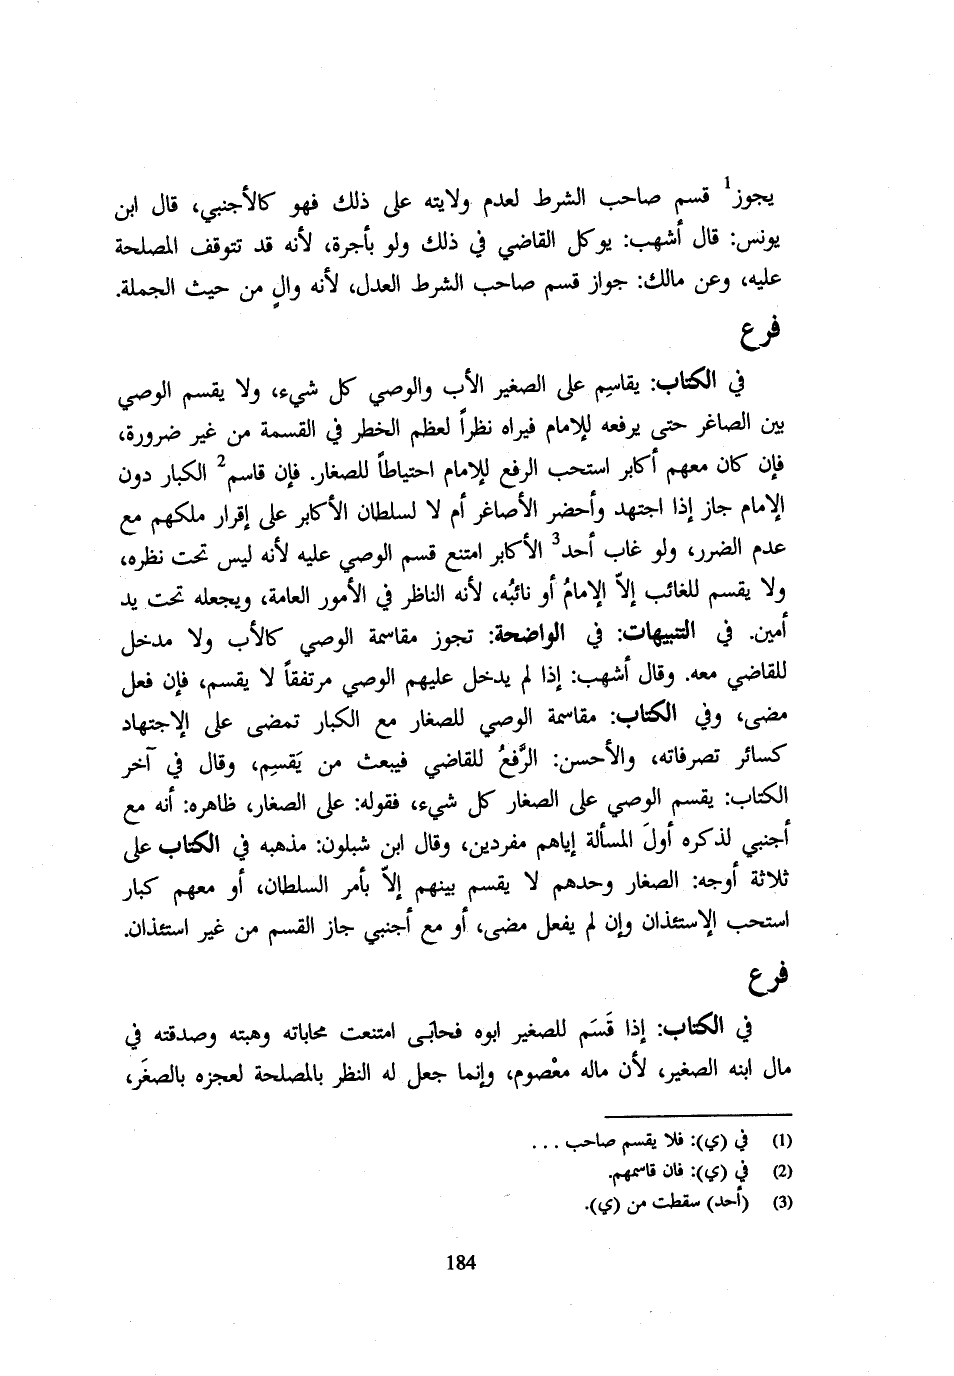 يجوز1 قسم صاحب الشرط لعدم ولايته على ذلك فهو كالأجنبي، قال ابن
يونس: قال أشهب: يوكل القاضي في ذلك ولو بأجرة، لأنه قد تتوقف المصلحة
عليه، وعن مالك: جواز قسم صاحب الشرط العدل، لأنه والٍ من حيث الجملة.
فرع
في الكتاب: يقاسِم على الصغير الأب والوصي كل شيء، ولا يقسم الوصي
بين الصاغر حتى يرفعه للإمام فيراه نظراً لعظم الخطر في القسمة من غير ضرورة،
فإن كان معهم أكابر استحب الرفع للإمام احتياطاً للصغار. فإن قاسم2 الكبار دون
الإمام جاز إذا اجتهد وأحضر الأصاغر أم لا لسلطان الأكابر على إقرار ملكهم مع
عدم الضرر، ولو غاب أحد3 الأكابر امتنع قسم الوصي عليه لأنه ليس تحت نظره،
ولا يقسم للغائب إلاّ الإمامُ أو نائبُه، لأنه الناظر في الأمور العامة، ويجعله تحت يد
أمين. في التنبيهات: في الواضحة: تجوز مقاسمة الوصي كالأب ولا مدخل
للقاضي معه. وقال أشهب: إذا لم يدخل عليهم الوصي مرتفقاً لا يقسم، فإن فعل
مضى، وفي الكتاب: مقاسمة الوصي للصغار مع الكبار تمضى على الإجتهاد
كسائر تصرفاته، والأحسن: الرَّفعُ للقاضي فيبعث من يَقسِم، وقال في آخر
الكتاب: يقسم الوصي على الصغار كل شيء، فقوله: على الصغار، ظاهره: أنه مع
أجنبي لذكره أولَ المسألة إياهم مفردين، وقال ابن شبلون: مذهبه في الكتاب على
ثلاثة أوجه: الصغار وحدهم لا يقسم بينهم إلاّ بأمر السلطان، أو معهم كبار
استحب الإستئذان وإن لم يفعل مضى، أو مع أجنبي جاز القسم من غير استئذان.
فرع
في الكتاب: إذا قَسَم للصغير ابوه فحابَى امتنعت محاباته وهبته وصدقته في
مال ابنه الصغير، لأن ماله معْصوم، وإنما جعل له النظر بالمصلحة لعجزه بالصغَر،
(1) في (ي): فلا يقسم صاحب ...
(2) في (ي): فان قاسمهم.
(3) (أحد) سقطت من (ي).
184